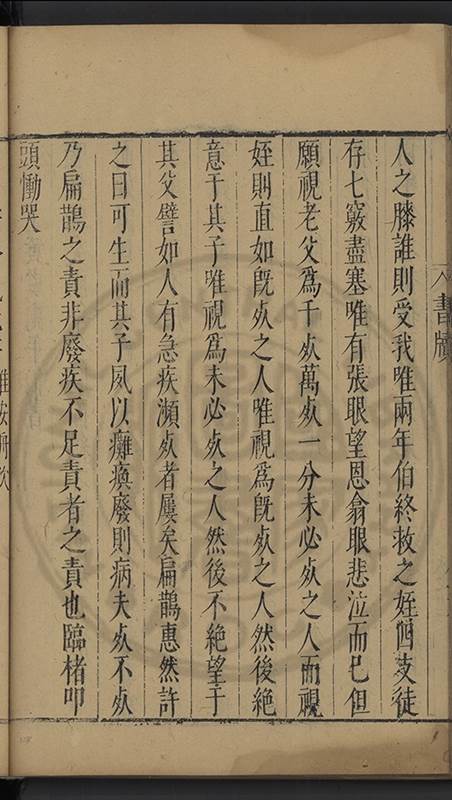 人之膝誰則受我唯兩年伯終救之姪四支徒
存七竅盡塞唯有張眼望恩翕眼悲泣而已但
願視老父爲千死萬死一分未必死之人而視
姪則直如旣死之人唯視爲旣死之人然後絶
意于其子唯視爲未必死之人然後不絶望于
其父譬如人有急疾瀕死者屢矣扁鵲惠然許
之曰可生而其子夙以癱瘓廢則病夫死不死
乃扁鵲之責非廢疾不足責者之責也臨楮叩
頭慟哭